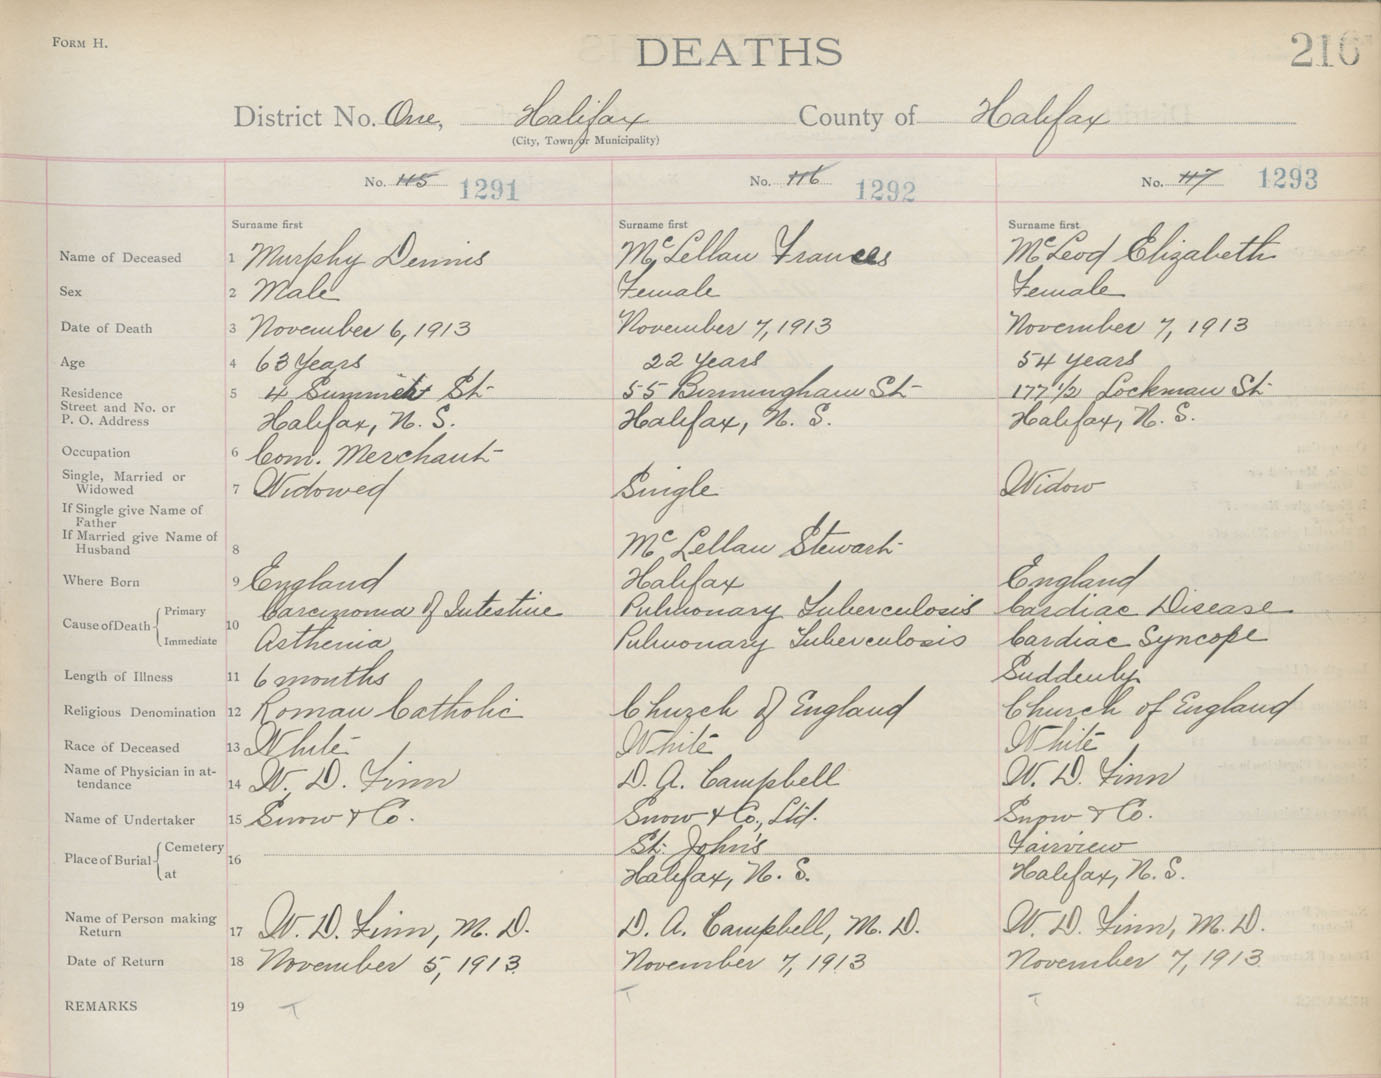 FORM H.
DEATHS
216
District No. One, Halifax County of Halifax
(City, Town or Municipality)
No. 115 1291 No. 116 1292 No. 117 1293
Surname first Surname first Surname first
Name of Deceased 1 Murphy Dennis McLellan Frances McLeod Elizabeth
Sex 2 Male Female Female
Date of Death 3 November 6, 1913 November 7, 1913 November 7, 1913
Age 4 63 Years 22 years 54 years
Residence 5 4 Summit St 55 Birmingham St 177 1/2 Lockman St
Street and No. or
P. O. Address Halifax, N. S. Halifax, N. S. Halifax, N. S.
Occupation 6 Com. Merchant
Single, Married or
Widowed 7 Widowed Single Widow
If Single give Name of
Father
If Married give Name of
Husband 8 McLellan Stewart
Where Born 9 England Halifax England
Cause of Death Primary 10 Carcinoma of Intestine Pulmonary Tuberculosis Cardiac Disease
Immediate Asthenia Pulmonary Tuberculosis Cardiac Syncope
Length of Illness 11 6 months Suddenly
Religious Denomination 12 Roman Catholic Church of England Church of England
Race of Deceased 13 White White White
Name of Physician in at-
tendance 14 W. D. Finn D. A. Campbell W. D. Finn
Name of Undertaker 15 Snow & Co. Snow & Co., Ltd. Snow & Co.
Place of Burial Cemetery 16 St. John's Fairview
at Halifax, N. S. Halifax, N. S.
Name of Person making
Return 17 W. D. Finn, M. D. D. A. Campbell, M. D. W. D. Finn, M. D.
Date of Return 18 November 5, 1913 November 7, 1913 November 7, 1913
REMARKS 19 T T T